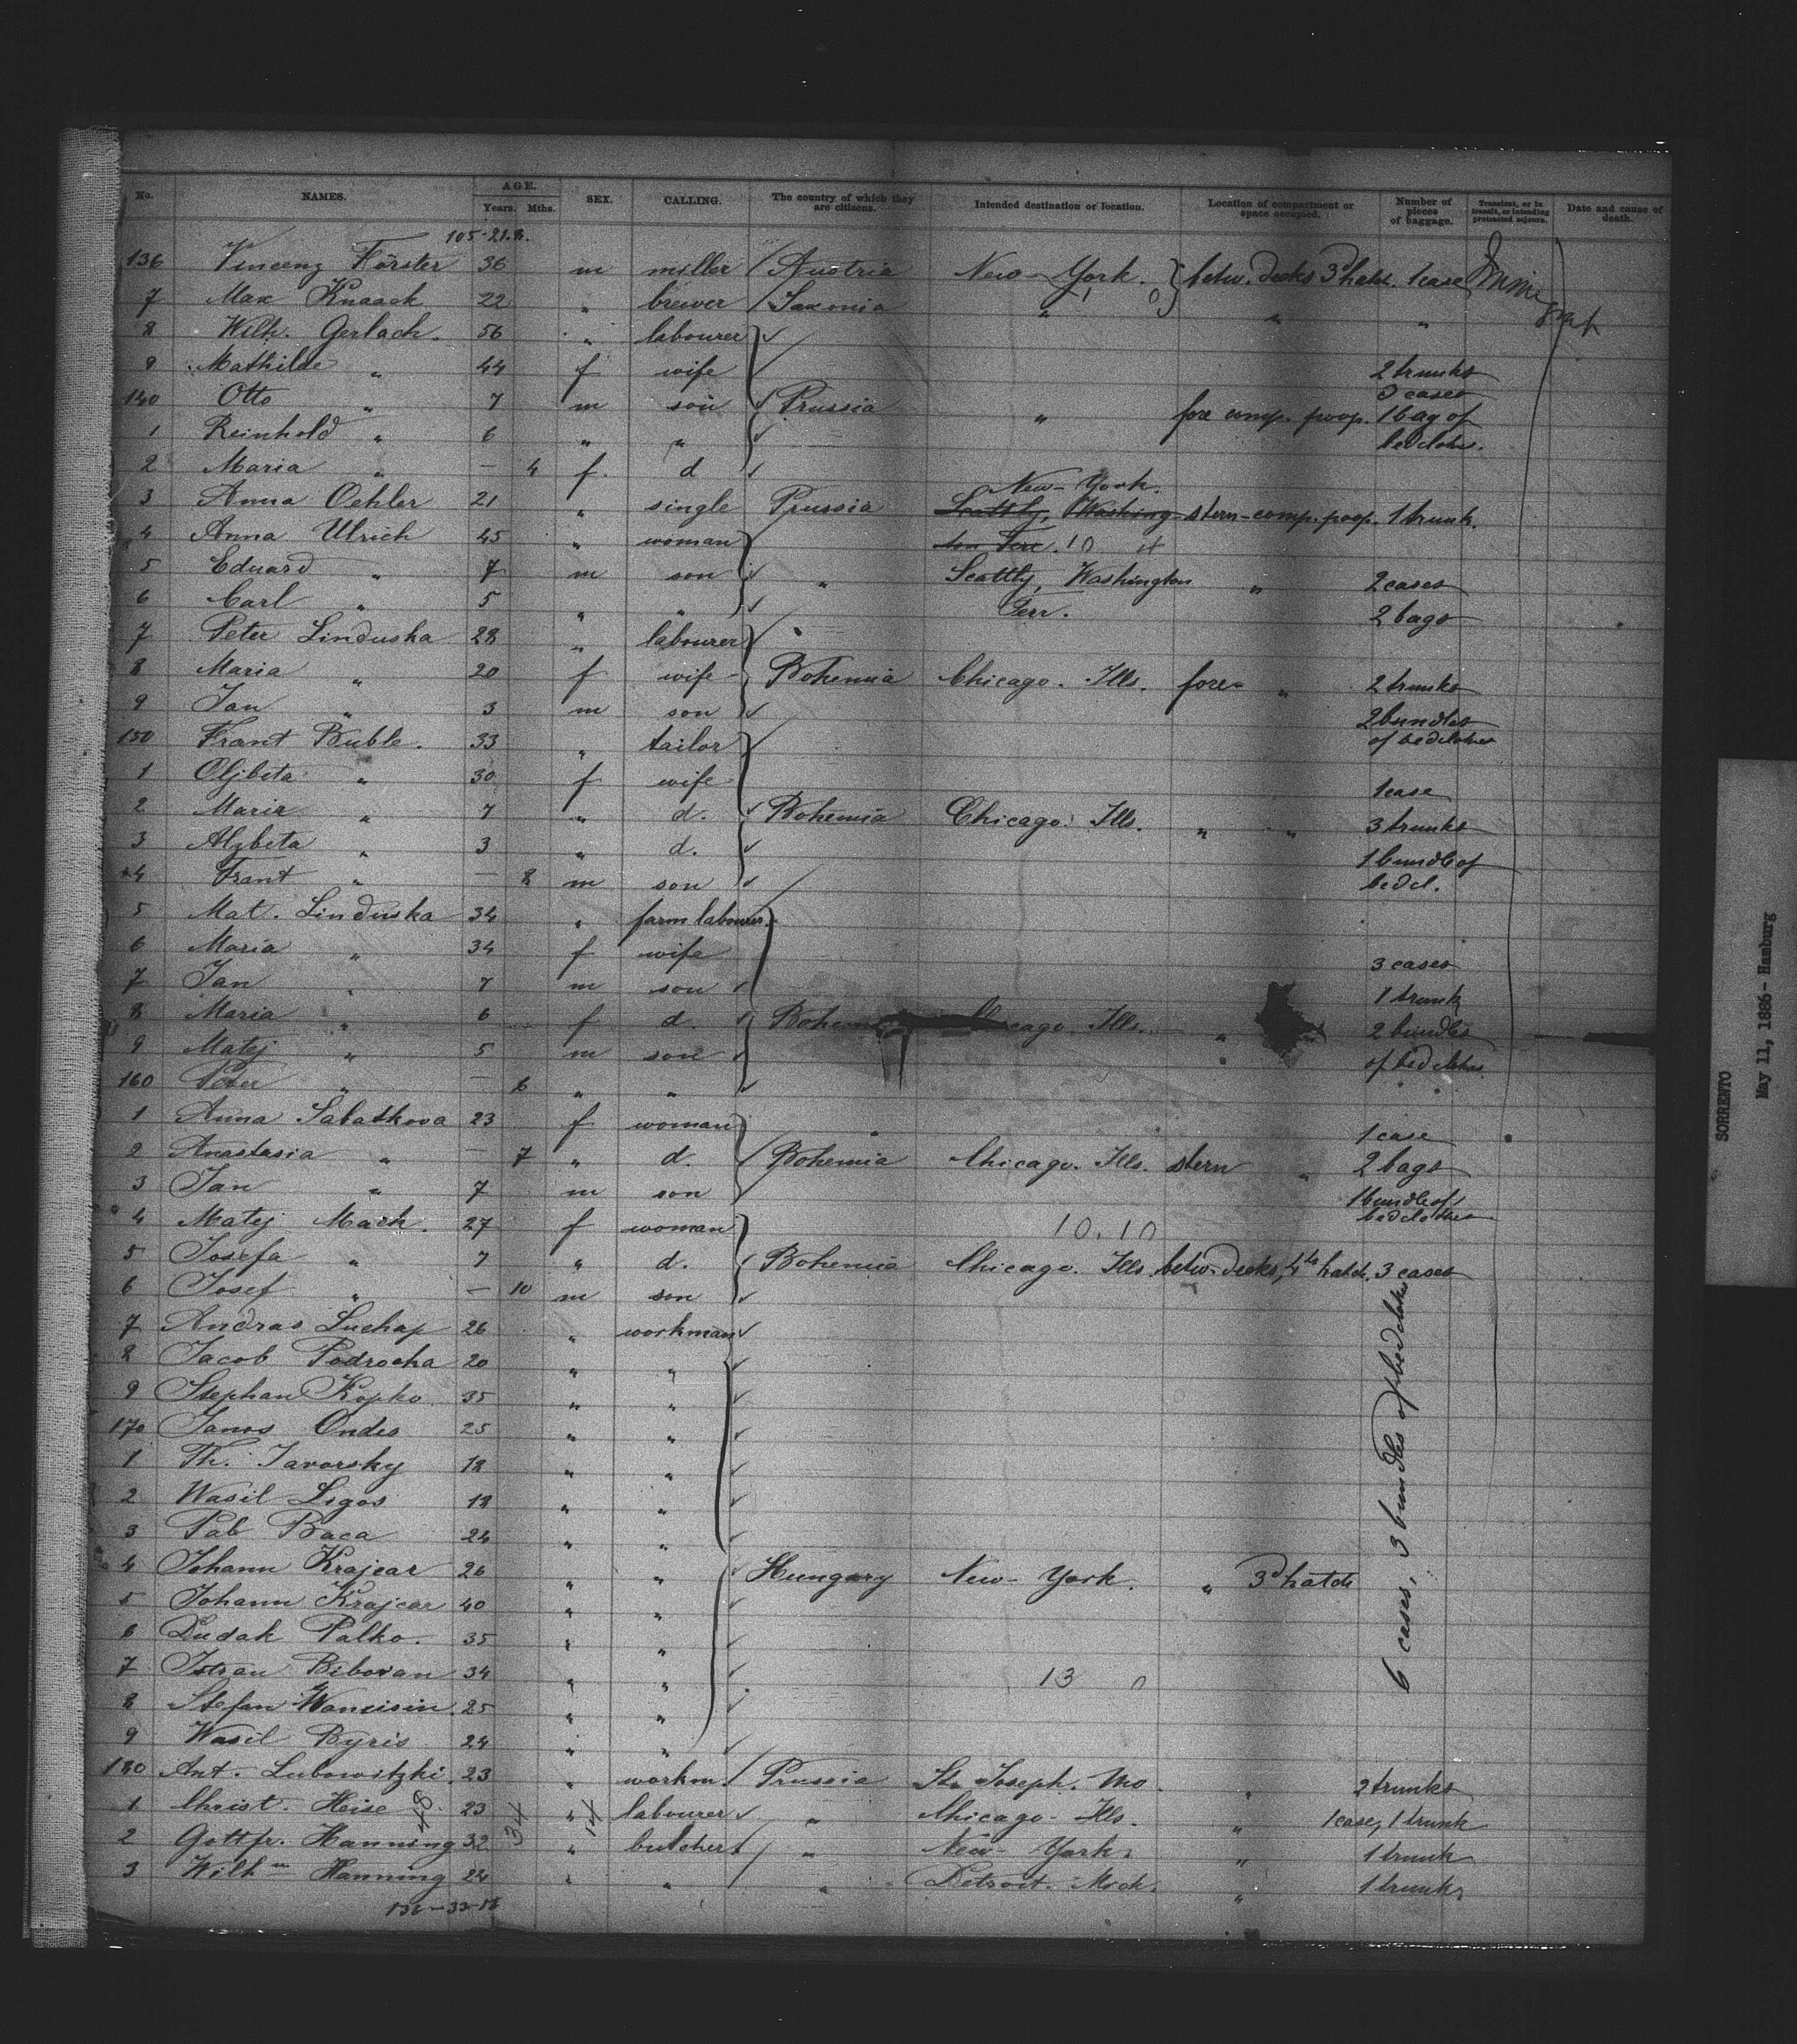 No. NAMES. AGE. Years. Mths. SEX. CALLING. The country of which they are citizens. Intended destination or location. Location of compartment or space occupied. Number of pieces of baggage. Transient, or in transit, or intending protracted sojourn. Date and cause of death.
105-21.9.
136 Vincenz Förster 36 m miller Austria New-York. betw. decks 3d hatch. 1 case Immigrant
7 Max Knaack 22 " brewer Saxonia " " "
8 Wilh. Gerlach. 56 " labourer
9 Mathilde " 44 f wife 2 trunks
3 cases
140 Otto " 7 m son Prussia " fore comp. poop. 1 bag of
1 Reinhold " 6 " " bedclothes.
2 Maria " — 4 f. d
New-York.
3 Anna Oehler 21 " single Prussia Seattly, Washing- stern-comp. poop. 1 trunk.
4 Anna Ulrich 45 " woman ton Terr. 10
5 Eduard " 7 m son " Seattly, Washington " 2 cases
6 Carl " 5 " " Terr. 2 bags
7 Peter Linduska 28 " labourer
8 Maria " 20 f wife Bohemia Chicago. Ills. fore " 2 trunks
9 Jan " 3 m son 2 bundles
of bedclothes
150 Frant Buble. 33 " tailor
1 Oljbeta " 30 f wife 1 case
2 Maria " 7 " d. Bohemia Chicago. Ills. " " 3 trunks
3 Alzbeta " 3 " d. 1 bundle of
4 Frant " — 8 m son bedcl.
5 Mat. Linduska 34 " farm labourer.
6 Maria " 34 f wife 3 cases
7 Jan " 7 m son 1 trunk
8 Maria " 6 f d. Bohem cago Ills. " 2 bundles
9 Matej " 5 m son " of bedclothes
160 Peter " — 6 " "
1 Anna Sabatkova 23 f woman 1 case
2 Anastasia " — 7 " d. Bohemia Chicago. Ills. stern " 2 bags
3 Jan " 7 m son 1 bundle of
bedclothes
4 Matej Mach. 27 f woman 10.10
5 Josefa " 7 " d. Bohemia Chicago. Ills. betw. decks, 4th hatch. 3 cases
6 Josef " — 10 m son
7 Andras Luchap 26 " workman
8 Jacob Podrocha 20 " "
9 Stephan Kopko 35 " "
170 Janos Ondes 25 " "
1 Th. Javorsky 18 " "
2 Wasil Ligos 18 " "
3 Pab Baca 24 " "
4 Johann Krajcar 26 " " Hungary New-York. " 3d hatch
5 Johann Krajcar 40 " "
6 Dudak Palko. 35 " "
7 Istvan Bibovan 34 " " 13
8 Stefan Wancisin 25 " "
9 Wasil Byris 24 " "
6 cases, 3 bundles of bedclothes
180 Ant. Lubowitzki. 23 " workm. Prussia St. Joseph. Mo. " 2 trunks
1 Christ. Heise 23 " labourer " Chicago-Ills. " 1 case, 1 trunk
2 Gottfr. Hanning 32 " butcher " New-York. " 1 trunk
3 Wilhm Hanning 24 " " " Detroit. Mich. " 1 trunk.
48 34 14
SORRENTO
May 11, 1886 - Hamburg